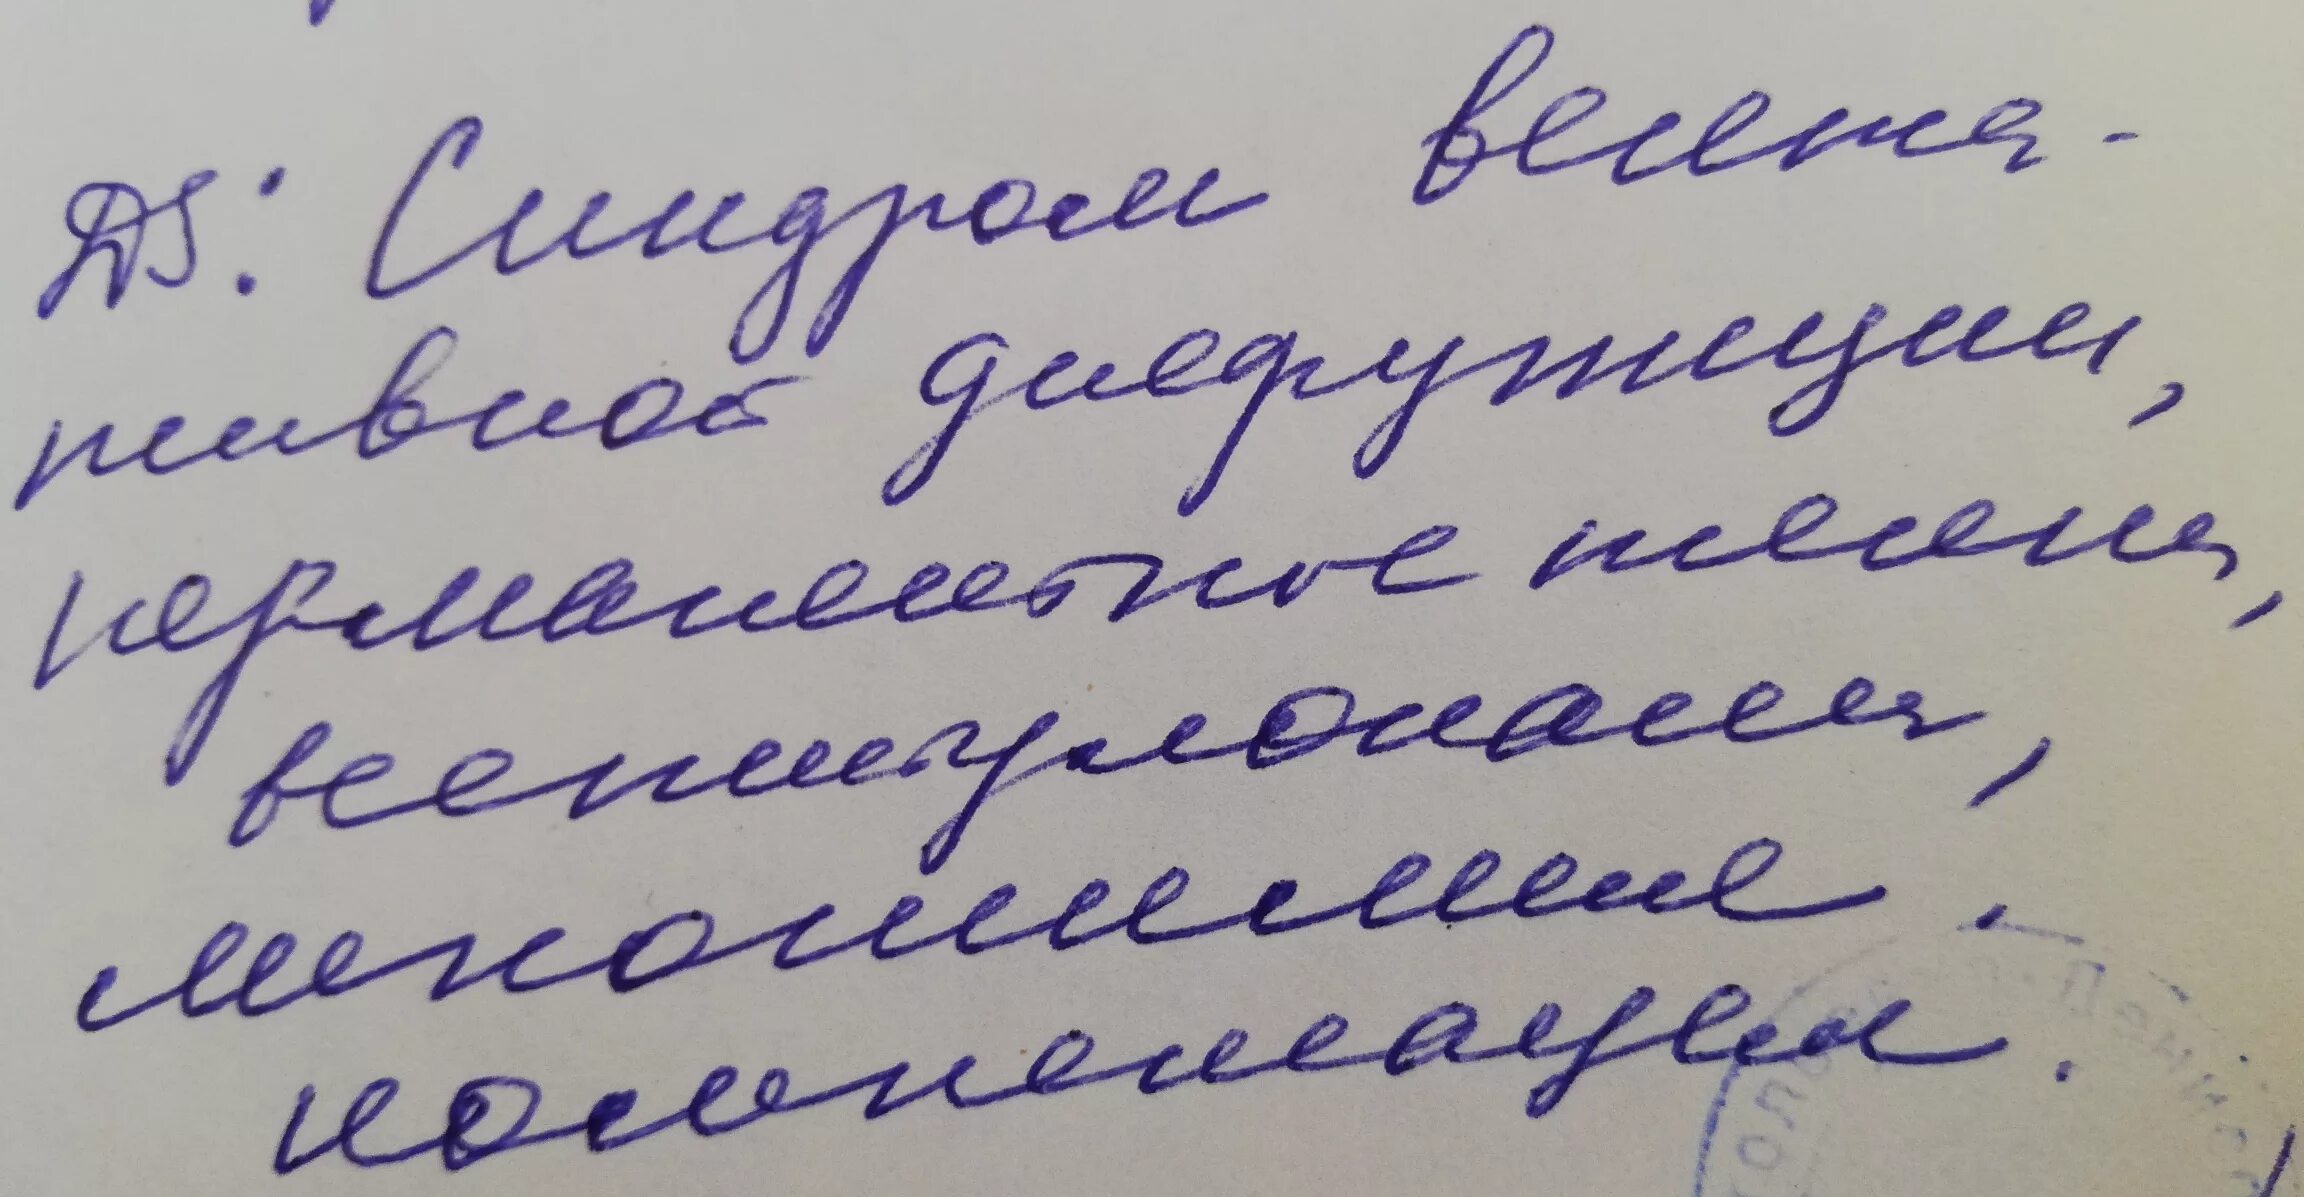 DS: Синдром вегета-
тивной дисфункции,
перманентное течение,
вестибулопатия,
компенсация.